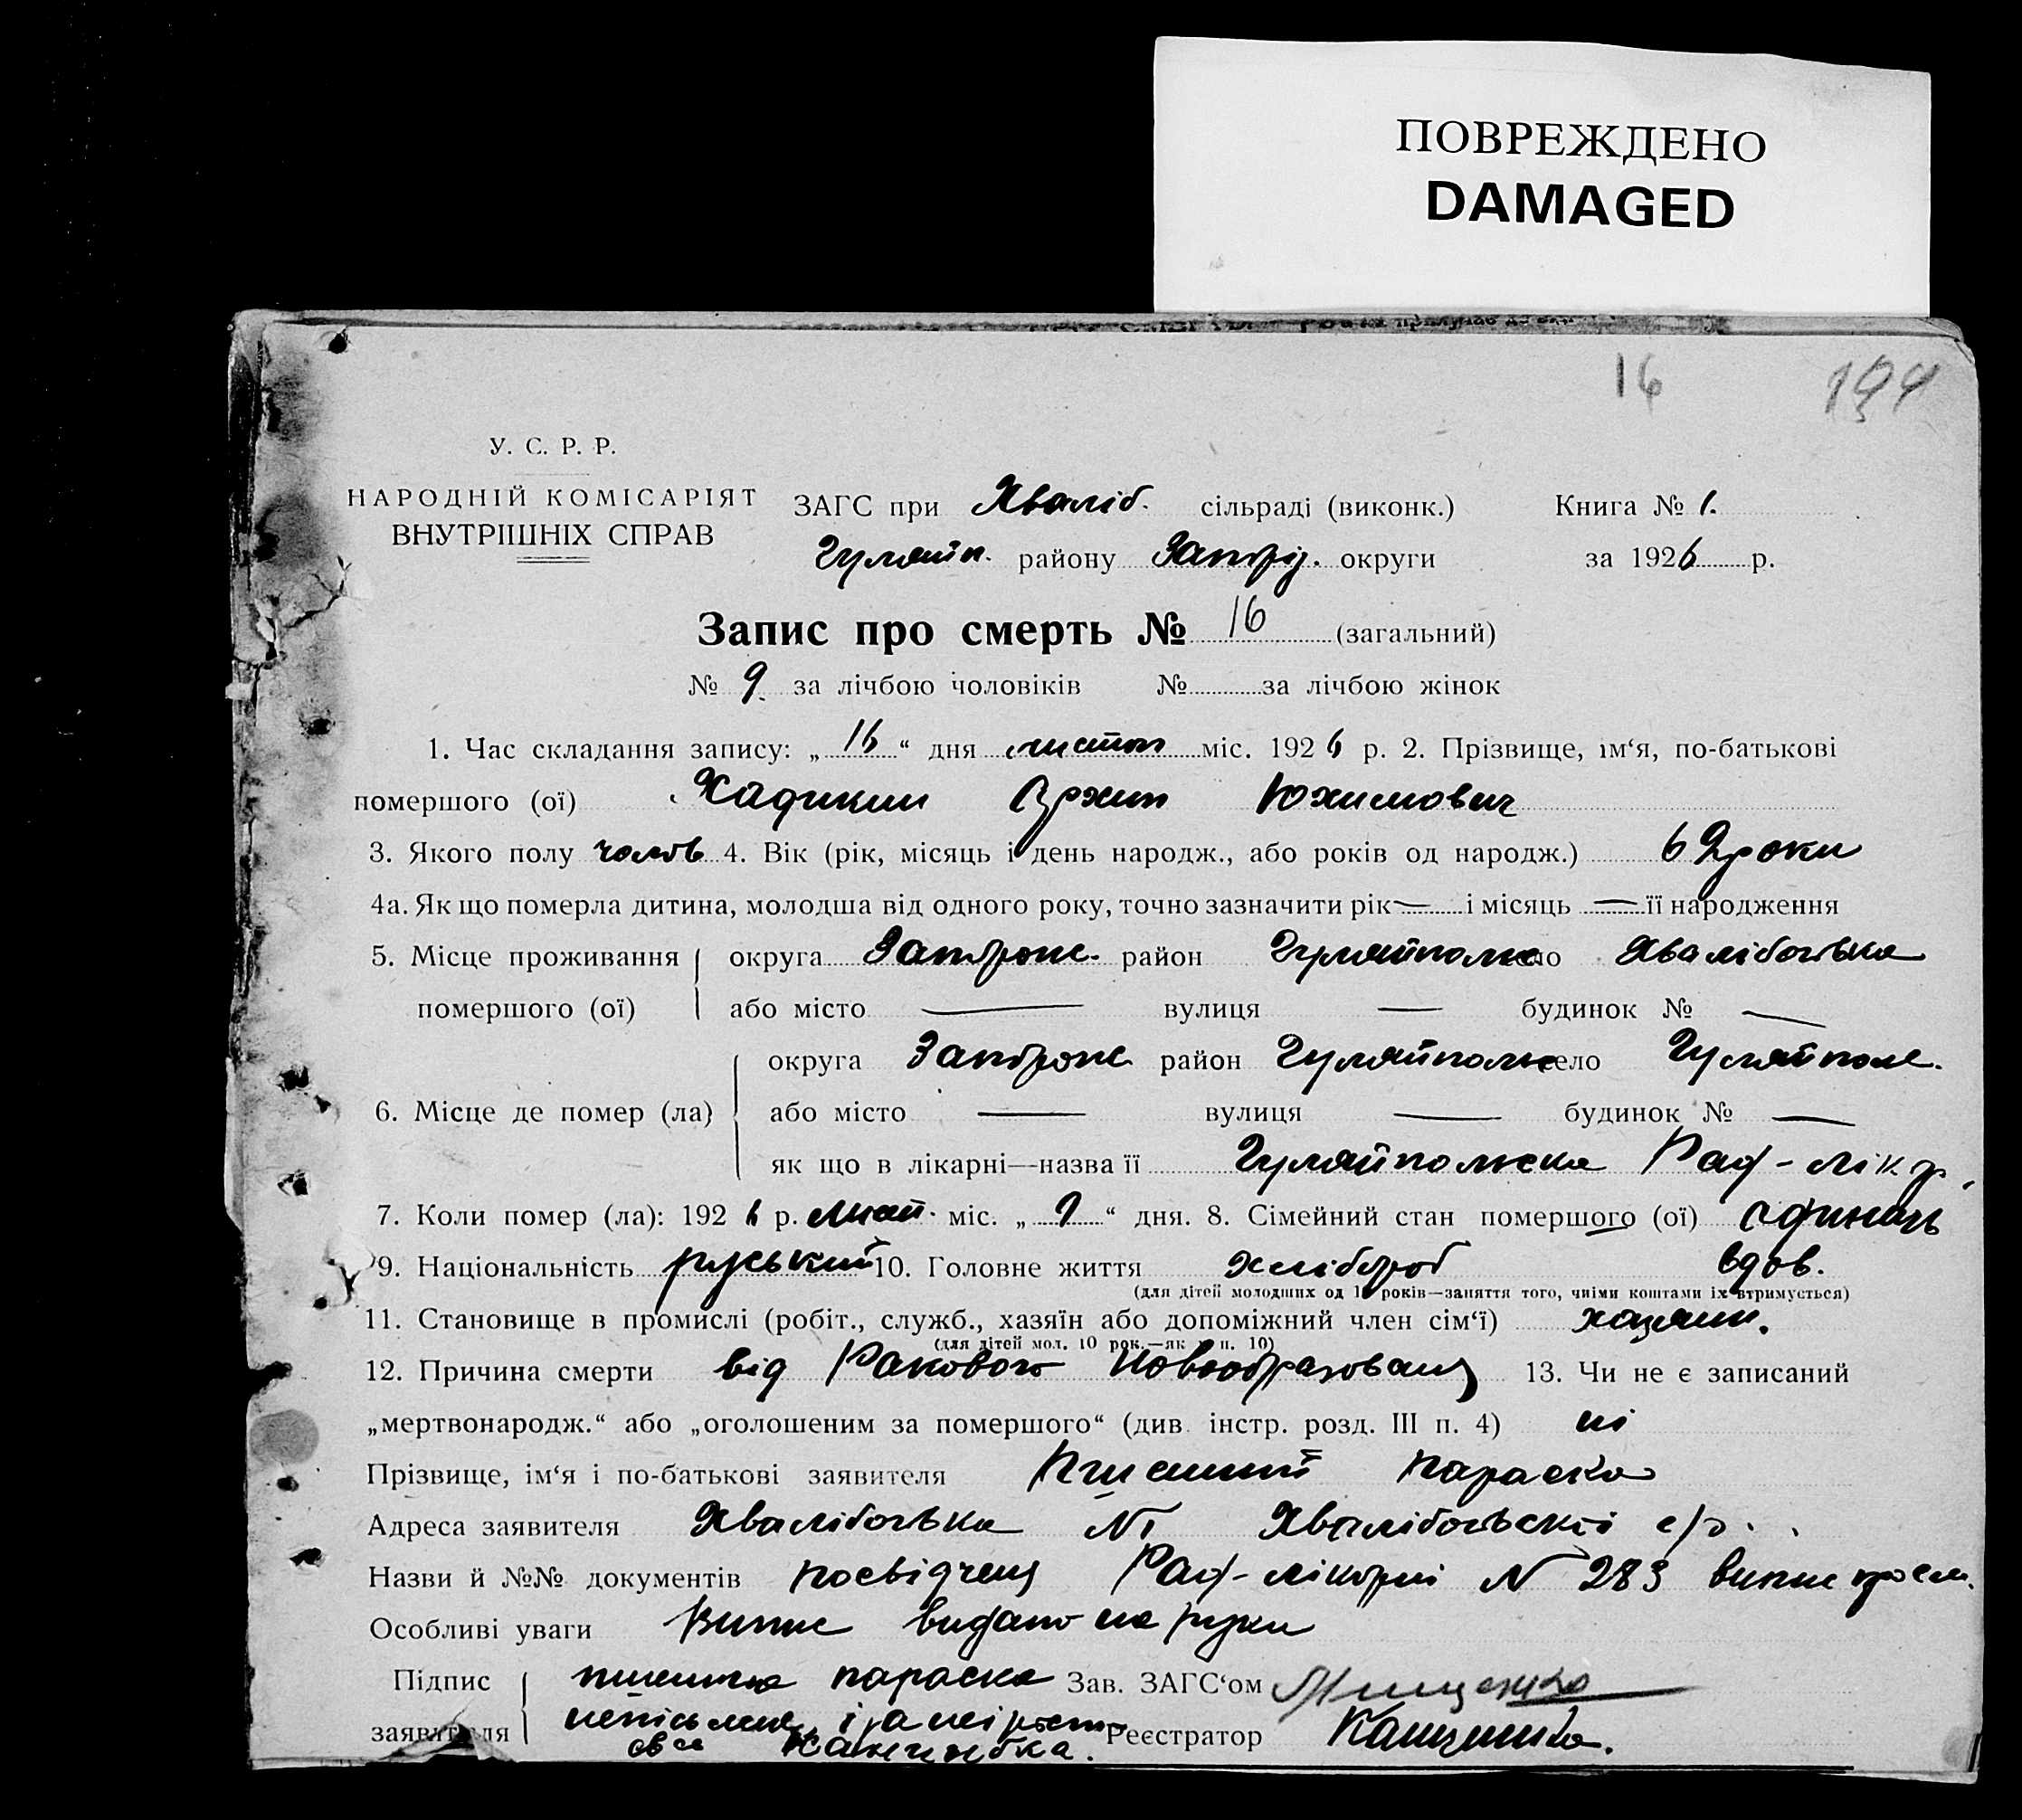 ПОВРЕЖДЕНО
DAMAGED
16
У. С. Р. Р.
НАРОДНІЙ КОМІСАРІЯТ
ВНУТРІШНІХ СПРАВ
ЗАГС при Хваліб. сільраді (виконк.) Книга № 1.
Гуляйп. району Запоріз. округи за 1926 р.
Запис про смерть № 16 (загальний)
№ 9. за лічбою чоловіків № за лічбою жінок
1. Час складання запису: „ 16 “ дня листоп міс. 1926 р. 2. Прізвище, ім‘я, по-батькові
помершого (ої) Юхимович
3. Якого полу чолов 4. Вік (рік, місяць і день народж., або років од народж.) 62 роки
4а. Як що померла дитина, молодша від одного року, точно зазначити рік — і місяць — її народження
5. Місце проживання округа Запорож. район Гуляйполье село Хвалібогівка
помершого (ої) або місто — вулиця — будинок № —
округа Запорож район Гуляйполье село Гуляйполе.
6. Місце де помер (ла) або місто — вулиця — будинок № —
як що в лікарні—назва її Гуляйпольска Рай-лікар.
7. Коли помер (ла): 1926 р. міс. „ 9 “ дня. 8. Сімейний стан помершого (ої) одинець
9. Національність руський 10. Головне життя хлібороб вдов.
(для дітей молодших од 10 років—заняття того, чиїми коштами їх втримується)
11. Становище в промислі (робіт., служб., хазяїн або допоміжний член сім‘ї) хазяин.
(для дітей мол. 10 рок.—як у п. 10)
12. Причина смерти від Ракового Новообразованя 13. Чи не є записаний
„мертвонародж.“ або „оголошеним за помершого“ (див. інстр. розд. III п. 4) ні
Прізвище, ім‘я і по-батькові заявителя Параска
Адреса заявителя Хвалібогівка №1 Хвалібогівскої с/р.
Назви й №№ документів посвідченя Рай-лікарні N 283 випис про см.
Особливі уваги Випис видано на руки
Підпис параска Зав. ЗАГС‘ом
заявителя неписьмена, і Реєстратор